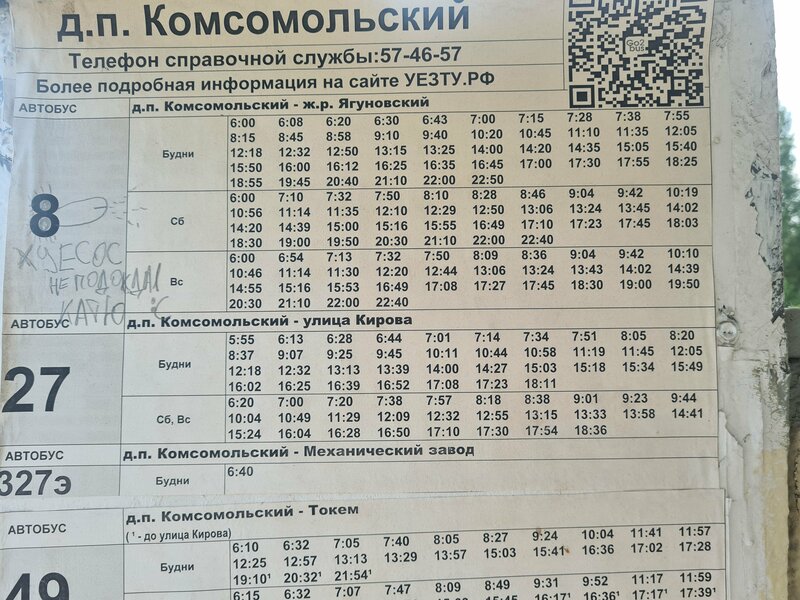 д.п. Комсомольский
Телефон справочной службы:57-46-57
Более подробная информация на сайте УЕЗТУ.РФ
Go2bus
АВТОБУС д.п. Комсомольский - ж.р. Ягуновский
8
Будни
6:00 6:08 6:20 6:30 6:43 7:00 7:15 7:28 7:38 7:55
8:15 8:45 8:58 9:10 9:40 10:20 10:45 11:10 11:35 12:05
12:18 12:32 12:50 13:15 13:25 14:00 14:20 14:35 15:05 15:40
15:50 16:00 16:12 16:25 16:35 16:45 17:00 17:30 17:55 18:25
18:55 19:45 20:40 21:10 22:00 22:50
Сб
6:00 7:10 7:32 7:50 8:10 8:28 8:46 9:04 9:42 10:19
10:56 11:14 11:35 12:10 12:29 12:50 13:06 13:24 13:45 14:02
14:20 14:39 15:00 15:16 15:55 16:49 17:10 17:23 17:45 18:03
18:30 19:00 19:50 20:30 21:10 22:00 22:40
Вс
6:00 6:54 7:13 7:32 7:50 8:09 8:36 9:04 9:42 10:10
10:46 11:14 11:30 12:20 12:44 13:06 13:24 13:43 14:02 14:39
14:55 15:16 15:53 16:49 17:08 17:27 17:45 18:30 19:00 19:50
20:30 21:10 22:00 22:40
ХУЕСОС
НЕ ПОДОЖДАЛ
КАТЮ :С
АВТОБУС д.п. Комсомольский - улица Кирова
27
Будни
5:55 6:13 6:28 6:44 7:01 7:14 7:34 7:51 8:05 8:20
8:37 9:07 9:25 9:45 10:11 10:44 10:58 11:19 11:45 12:05
12:18 12:32 13:13 13:39 14:00 14:27 15:03 15:18 15:34 15:49
16:02 16:25 16:39 16:52 17:08 17:23 18:11
Сб, Вс
6:20 7:00 7:20 7:38 7:57 8:18 8:38 9:01 9:23 9:44
10:04 10:49 11:29 12:09 12:32 12:55 13:15 13:33 13:58 14:41
15:24 16:04 16:28 16:50 17:10 17:30 17:54 18:36
АВТОБУС д.п. Комсомольский - Механический завод
327э Будни 6:40
АВТОБУС д.п. Комсомольский - Токем
(¹ - до улица Кирова)
49
Будни
6:10 6:32 7:05 7:40 8:05 8:27 9:24 10:04 11:41 11:57
12:25 12:57 13:13 13:29 13:57 15:03 15:41 16:36 17:02 17:28
19:10¹ 20:32¹ 21:54¹
6:15 6:32 7:07 7:47 8:09 8:49 9:31 9:52 11:17 11:59
16:17¹ 16:36¹ 17:17¹ 17:39¹